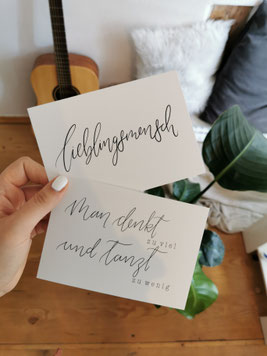 lieblingsmensch
Man denkt
zu viel
und tanzt
zu wenig